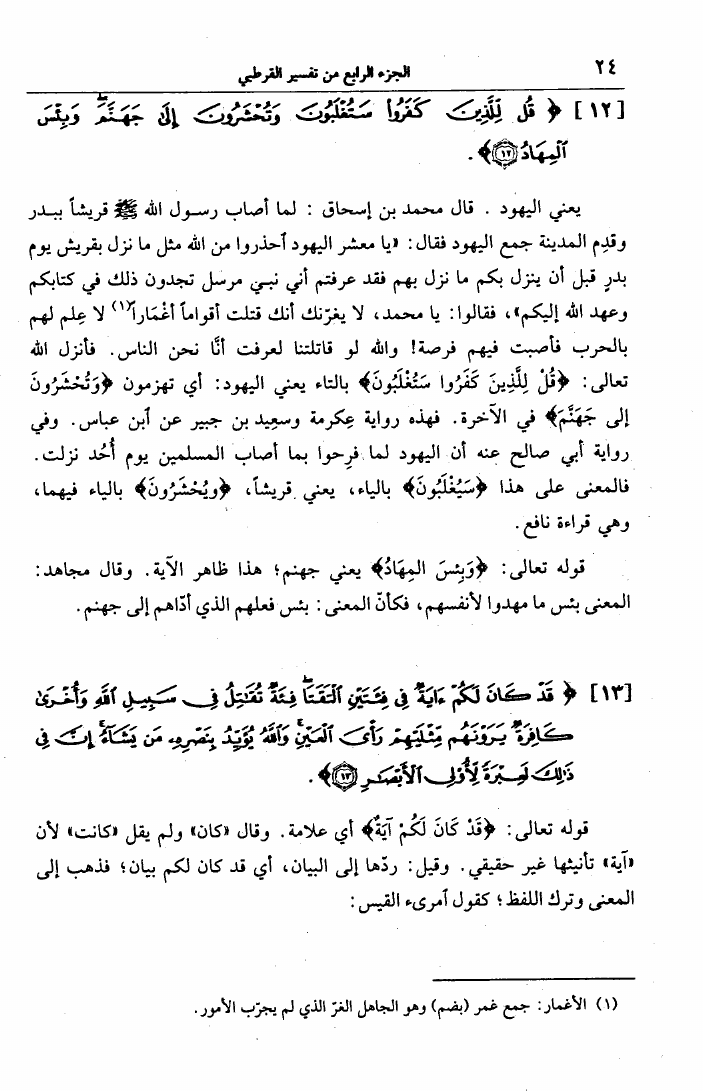 ٢٤
الجزء الرابع من تفسير القرطبي
[١٢] ﴿ قُل لِّلَّذِينَ كَفَرُوا۟ سَتُغْلَبُونَ وَتُحْشَرُونَ إِلَىٰ جَهَنَّمَ ۚ وَبِئْسَ
ٱلْمِهَادُ ۝١٢﴾ .
يعني اليهود . قال محمد بن إسحاق : لما أصاب رسول الله ﷺ قريشاً ببدر
وقدِم المدينة جمع اليهود فقال: «يا معشر اليهود ٱحذروا من الله مثل ما نزل بقريش يوم
بدرٍ قبل أن ينزل بكم ما نزل بهم فقد عرفتم أني نبـي مرسل تجدون ذلك في كتابكم
وعهد الله إليكم»، فقالوا: يا محمد، لا يغرّنك أنك قتلت أقواماً أغْمَاراً(١) لا عِلم لهم
بالحرب فأصبت فيهم فرصة! والله لو قاتلتنا لعرفت أنَّا نحن الناس. فأنزل الله
تعالى: ﴿قُلْ لِلَّذِينَ كَفَرُوا سَتُغْلَبُونَ﴾ بالتاء يعني اليهود: أي تهزمون ﴿وَتُحْشَرُونَ
إلى جَهَنَّمَ﴾ في الآخرة. فهذه رواية عِكرمة وسعِيد بن جبير عن ٱبن عباس. وفي
رواية أبي صالح عنه أن اليهود لما فرِحوا بما أصاب المسلمين يوم أُحُد نزلت.
فالمعنى على هذا ﴿سَيُغْلَبُونَ﴾ بالياء، يعني قريشاً، ﴿ويُحْشَرُونَ﴾ بالياء فيهما،
وهي قراءة نافع.
قوله تعالى: ﴿وَبِئسَ المِهَادُ﴾ يعني جهنم؛ هذا ظاهر الآية. وقال مجاهد:
المعنى بئس ما مهدوا لأنفسهم، فكأنّ المعنى: بئس فعلهم الذي أدّاهم إلى جهنم.
[١٣] ﴿ قَدْ كَانَ لَكُمْ ءَايَةٌ فِى فِئَتَيْنِ ٱلْتَقَتَا ۖ فِئَةٌ تُقَـٰتِلُ فِى سَبِيلِ ٱللَّهِ وَأُخْرَىٰ
كَافِرَةٌ يَرَوْنَهُم مِّثْلَيْهِمْ رَأْىَ ٱلْعَيْنِ ۚ وَٱللَّهُ يُؤَيِّدُ بِنَصْرِهِۦ مَن يَشَآءُ ۗ إِنَّ فِى
ذَٰلِكَ لَعِبْرَةً لِّأُو۟لِى ٱلْأَبْصَـٰرِ ۝١٣﴾ .
قوله تعالى: ﴿قَدْ كَانَ لَكُمْ آيَةٌ﴾ أي علامة. وقال «كان» ولم يقل «كانت» لأن
«آية» تأنيثها غير حقيقي. وقيل: ردّها إلى البيان، أي قد كان لكم بيان؛ فذهب إلى
المعنى وترك اللفظ؛ كقول ٱمرىء القيس:
(١) الأغمار: جمع غمر (بضم) وهو الجاهل الغرّ الذي لم يجرّب الأمور.